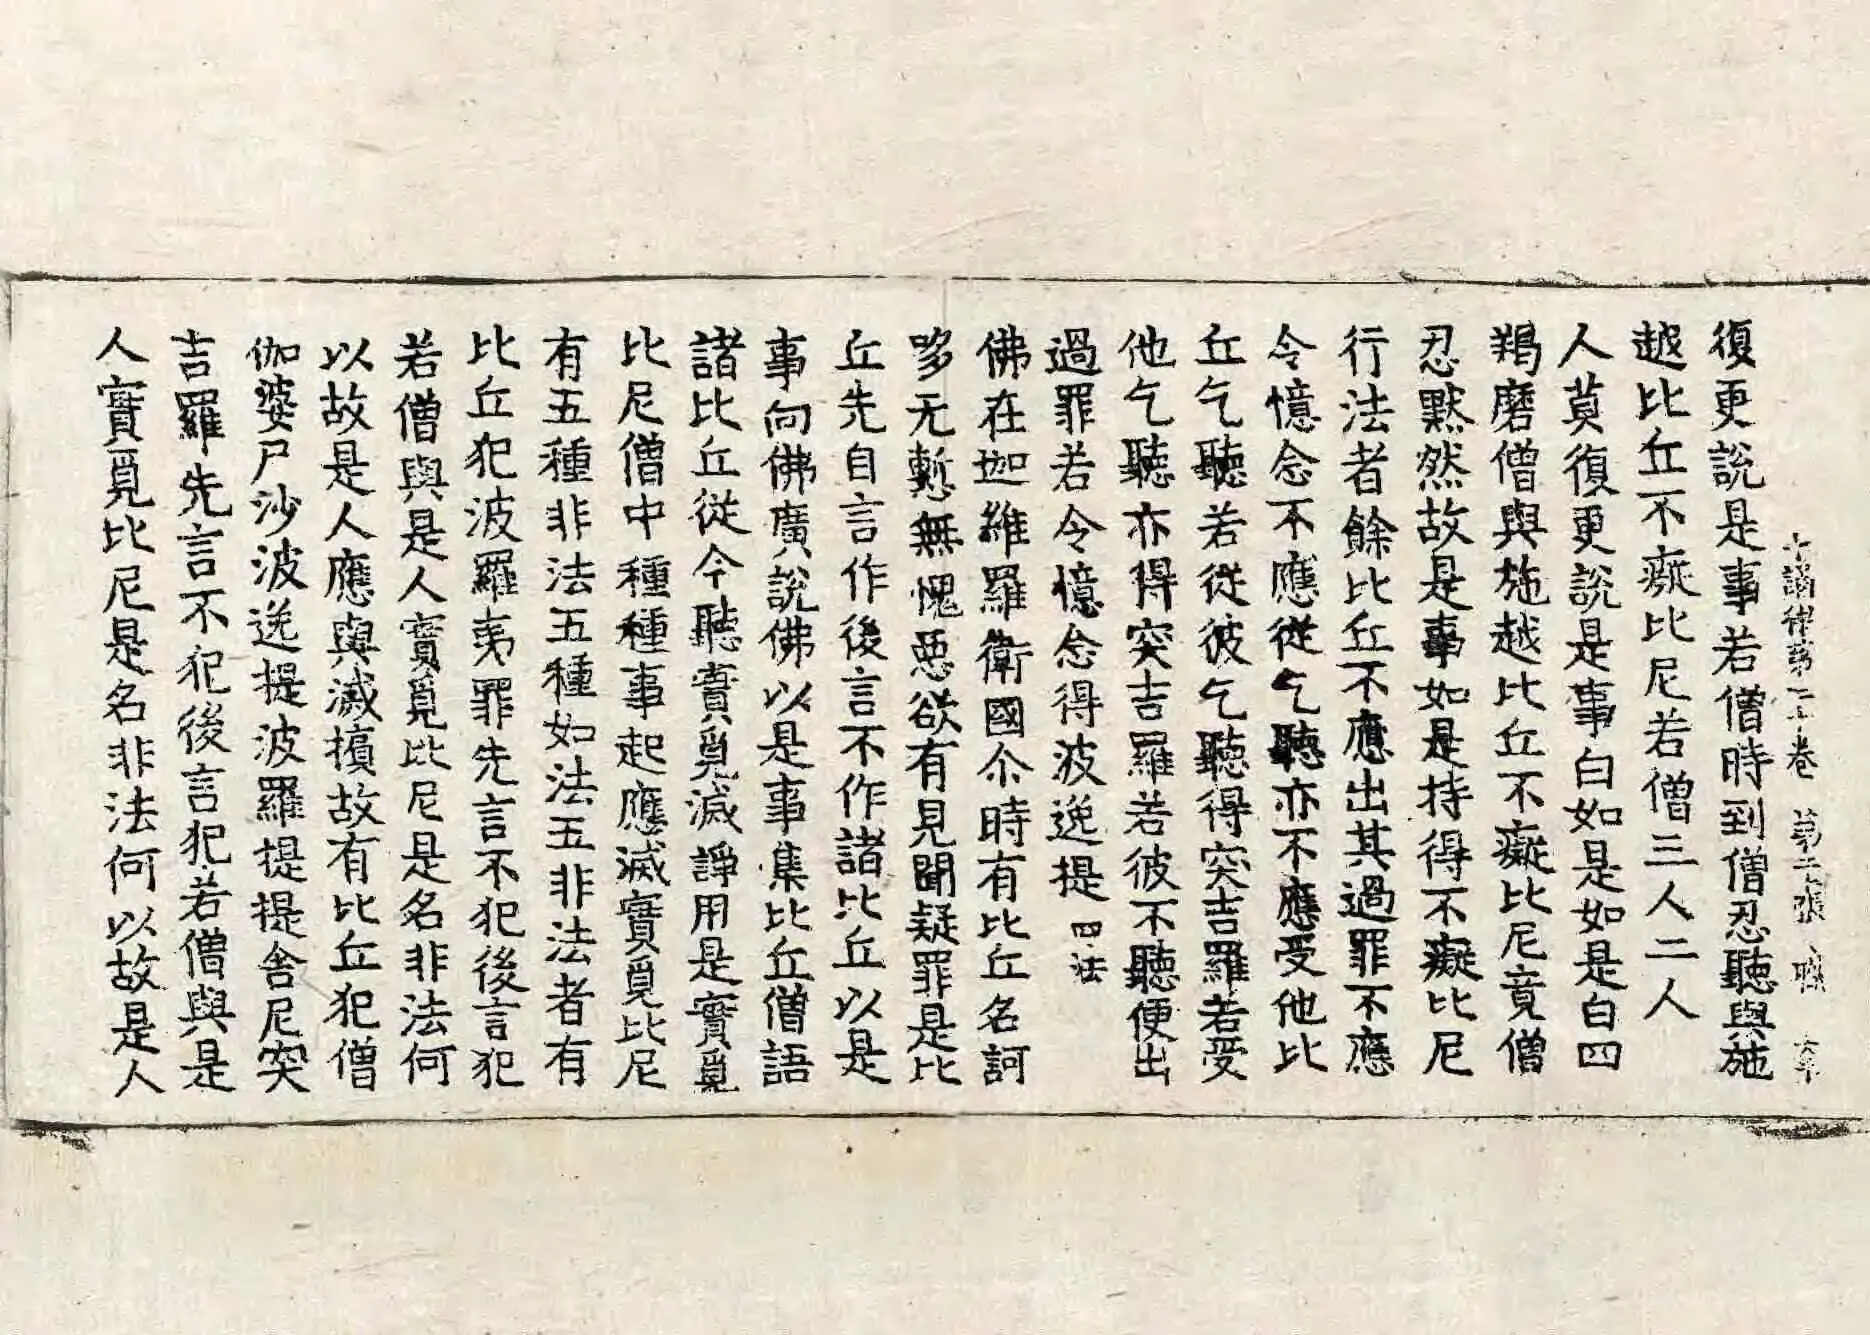 十誦律第二十卷 第二張
復更說是事若僧時到僧忍聽與施
越比丘不癡比尼若僧三人二人
人莫復更說是事白如是如是白四
羯磨僧與施越比丘不癡比尼竟僧
忍黙然故是事如是持得不癡比尼
行法者餘比丘不應出其過罪不應
令憶念不應從乞聽亦不應受他比
丘乞聽若從彼乞聽得突吉羅若受
他乞聽亦得突吉羅若彼不聽便出
過罪若令憶念得波逸提 四法
佛在迦維羅衛國尒時有比丘名訶
哆无慙無愧惡欲有見聞疑罪是比
丘先自言作後言不作諸比丘以是
事向佛廣說佛以是事集比丘僧語
諸比丘從今聽實覓滅諍用是實覓
比尼僧中種種事起應滅實覓比尼
有五種非法五種如法五非法者有
比丘犯波羅夷罪先言不犯後言犯
若僧與是人實覓比尼是名非法何
以故是人應與滅擯故有比丘犯僧
伽婆尸沙波逸提波羅提提舍尼突
吉羅先言不犯後言犯若僧與是
人實覓比尼是名非法何以故是人